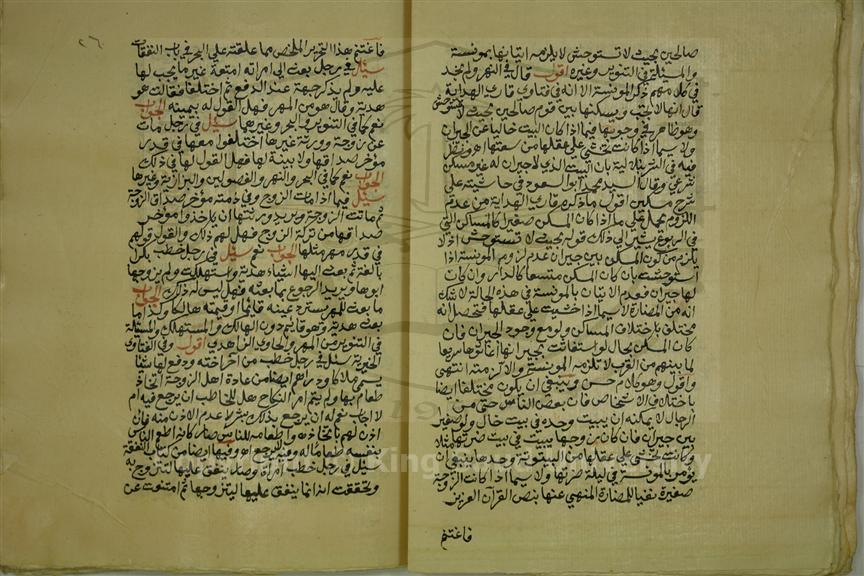 صالحين بحيث لا تستوحش لا يلزمه اتيانها بمؤنسة
والمسئلة في التنوير وغيره اقول قال في النهر ولم نجد
في كلامهم ذكر المؤنسة الا انه في فتاوى قاري الهداية
قال انها لا تجب ويسكنها بين قوم صالحين بحيث لا تستوحش
وهو ظاهر في وجوبها فيما اذا كان البيت خاليا عن الجيران
ولا سيما اذا كانت تخشى على عقلها من سعتها وفي نظر
فيه في الشرنبلالية بان البيت الذي لا جيران له غير مسكن
شرعي وقال السيد محمد ابو السعود في حاشيته على
شرح مسكين اقول ما ذكره قاري الهداية من عدم
اللزوم يحمل على ما اذا كان المسكن صغيرا كالمساكن التي
في الربوع يشير الى ذلك قوله بحيث لا تستوحش اذ لا
يلزم من كون المسكن بين جيران عدم لزوم المؤنسة اذا
استوحشت بان كان المسكن متسعا كالدار وان كان
لها جيران فعدم الاتيان بالمؤنسة في هذه الحالة لا شك
انه من المضارة لا سيما اذا خشيت على عقلها فتحصل انه
مختلف باختلاف المساكن ولو مع وجود الجيران فان
كان المسكن بحال لو استغاثت بجيرانها اغاثوها سريعا
لما بينهم من القرب لا تلزمه المؤنسة والا لزمته انتهى
واقول وهو كلام حسن وينبغي ان يكون مختلفا ايضا
باختلاف الاشخاص فان بعض الناس حتى من
الرجال لا يمكنه ان يبيت وحده في بيت خال ولو صغيرا
بين جيران فان كان زوجها يبيت في بيت ضرتها مثلا
وكانت تخشى على عقلها من البيتوتة وحدها ينبغي ان
يؤمر بالمؤنسة في ليلة ضرتها ولا سيما اذا كانت الزوجة
صغيرة نفيا للمضارة المنهي عنها بنص القرآن العزيز
فاغتنم
٢٦
فاغتنم هذا التحرير الملخص مما علقته على البحر في باب النفقات
سئل في رجل بعث الى امراته امتعة غير ما يجب لها
عليه ولم يذكر جهة عند الدفع ثم اختلفا فقالت هو
هدية وقال هو من المهر فهل القول له بيمينه الجواب
نعم كما في التنوير والبحر وغيرهما سئل في رجل مات
عن زوجة وورثة غيرها اختلفوا معها في قدر
مؤخر صداقها ولا بينة لها فهل القول لها في ذلك
الجواب نعم كما في البحر والنهر والفصولين والبزازية وغيرها
سئل فيما اذا مات الزوج وفي ذمته مؤخر صداق الزوجة
ثم ماتت الزوجة ويريد ورثتها ان ياخذوا مؤخر
صداقها من تركة الزوج فهل لهم ذلك والقول قولهم
في قدر مهر مثلها الجواب نعم سئل في رجل خطب بكرا
بالغة ثم بعث اليها اشياء هدية واستهلكت ولم يزوجها
ابوها ويريد الرجوع بما بعثه فهل ليس له ذلك الجواب
ما بعث للمهر يسترد عينه قائما او قيمته هالكا وكذا ما
بعث هدية وهو قائم دون الهالك والمستهلك والمسئلة
في التنوير من المهر والحاوي الزاهدي اقول وفي الفتاوى
الخيرية سئل في رجل خطب من آخر اخته ودفع لها شيئا
يسمى ملاكا ودراهم ايضا من عادة اهل الزوجة اتخاذ
طعام بها ولم يتم امر النكاح هل للخاطب ان يرجع فيه ام
لا اجاب نعم له ان يرجع بذلك بشرط عدم الاذن منه فان
اذن لهم باتخاذه واطعامه للناس صار كانه اطعم الناس
بنفسه طعاما له وفيه لا يرجع اهـ وفيها ايضا من كتاب النفقة
سئل في رجل خطب امرأة وصار ينفق عليها لتتزوج به
وتحققت انه انما ينفق عليها ليتزوجها ثم امتنعت عن